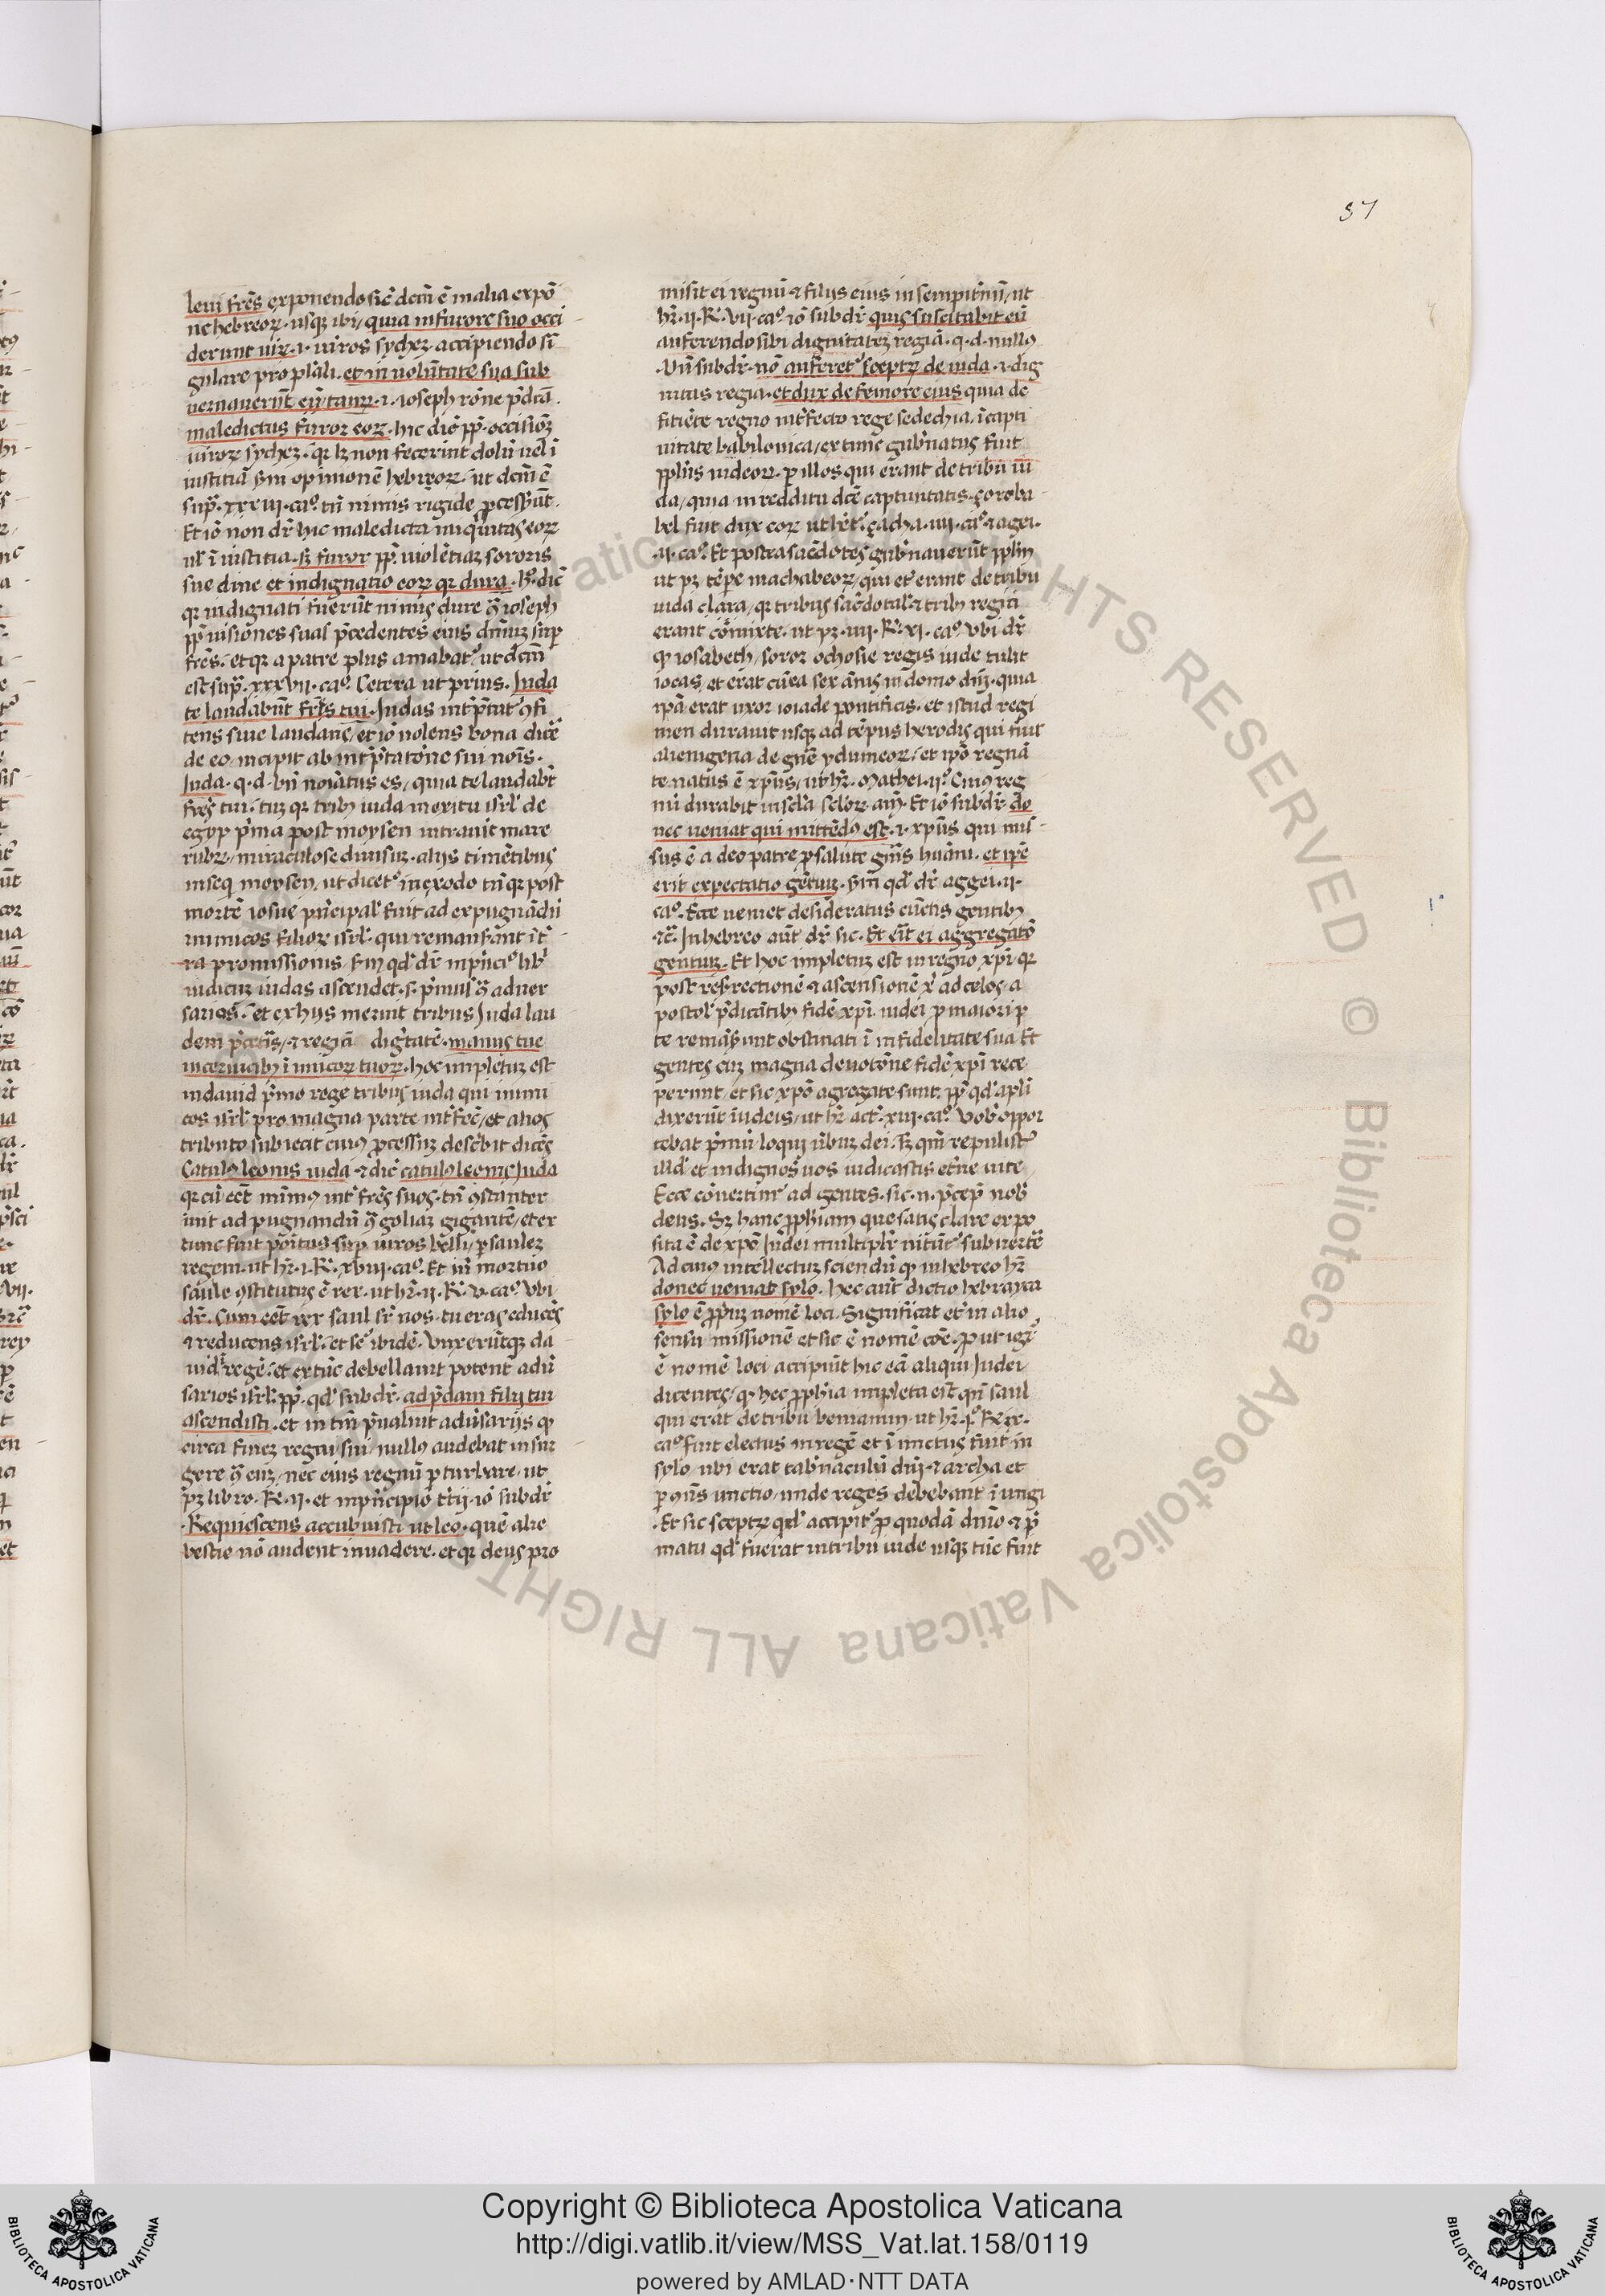 57
leui frēs exponendo sic̄ dcm̄ ē in alia expō
ne hebreoꝝ. usqꝫ ibi/ quia in furore suo occi
derunt uiꝝ .i. uiros sychez accipiendo sī
gulare pro plali. et in uolūtate sua sub
neruauer̄t eū taur .i. ioseph rōne p̄dcā.
maledictus furor eoꝝ. hic dic̄ pp̄ occisiōꝫ
uiroꝝ sychez. qꝛ lꝫ non fecerint dolū uel ī
iustitiā sm̄ opinionē hebreoꝝ. ut dcm̄ ē
sup̄. xxxiiii. caº. tn̄ nimis rigide p̄cess̄ūt.
Et iō non dr̄ hic maledicta iniquitas eoꝝ
ul̄ ī iustitia. sꝫ furor pp̄ violētiaꝫ sororis
sue dine et indignatio eoꝝ qꝛ dura. hº. dic̄
qꝛ indignati fuerūt nimis dure ꝯ̄ ioseph
pp̄ uisiones suas p̄cedentes eius dn̄iuꝫ sup̄
frēs. et qꝛ a patre plus amabat᷑. ut dcm̄
est sup̄. xxxvii. caº. Cetera ut prius. Iuda
te laudabūt frēs tui. Iudas int̄p̄tat᷑ ꝯfi
tens siue laudans/ et iō uolens bona dicē
de eo. incipit ab int̄p̄tatōne sui noīs.
Iuda. q. d. bn̄ noīatus es/ quia te laudabt̄
frēs tui. tuꝫ qꝛ tribꝫ iuda in exitu isrl̄ de
egyp p̄ma post moysen intrauit mare
rubꝝ/ miraculose diuisuꝫ. alijs timētibus
inseq̄ moysen. ut dicet᷑ in exodo tn̄ qꝛ post
mortē iosue p̄ncipal̄ fuit ad expugnādū
inimicos filioꝝ isrl̄. qui remansūant ī t̄
ra promissionis. sm̄ qd̄ dr̄ in p̄nciº. lib̄
iudicuꝫ iudas ascendet. s. p̄mus ꝯ̄ aduer
sarios. et ex hijs meruit tribus Iuda lau
dem p̄ cetis/ ⁊ regiā diḡtatē. manus tue
in ceruicibꝫ īimicoꝝ tuoꝝ. hoc impletuꝫ est
in dauid p̄mo rege tribus iuda qui inimi
cos isrl̄ pro magna parte int̄fec̄/ et alios
tributo subiecit cuiꝰ p̄cessuꝫ desc̄bit dicēs
Catulꝰ leonis iuda. ⁊ dic̄ catulꝰ leonis Iuda
qꝛ cū eēt minimꝰ int̄ frēs suos. tn̄ ꝯstanter
iuit ad pugnandū ꝯ̄ goliaꝫ gigantē/ et ex
tunc fuit p̄oitus sup̄ uiros belli/ p̄ saulez
regem. ut hr̄. i. R̄. xviii. caº. Et iā mortuo
saule ꝯstitutus ē rex. ut hr̄. ii. R̄. v. caº. Vbi
dr̄. Cum eēt rex saul sr̄ nos. tu eras educēs
⁊ reducens isrl̄. et seº ibidē. Vnxerūtqꝫ da
uid regē. et ex tūc debellauit potent̄ adū
sarios isrl̄. pp̄ qd̄ subdr̄. ad p̄dam filij tui
ascendisti. et in tm̄ p̄ualuit adūsarijs ꝙ
circa fineꝫ regni sui nullꝰ audebat insur
gere ꝯ̄ euꝫ/ nec eius regnū p̄turbare. ut
pꝫ libro. R̄. ii. et in p̄ncipio tt̄ij. iō subdr̄
.Requiescens accubuisti ut leo. quē alie
bestie nō audent inuadere. et qꝛ deus pro
misit ei regnū ⁊ filijs eius in sempit̄nū/ ut
hr̄. ii. R̄. vii. caº. iō subdr̄ quis suscitabit eū
auferendo sibi dignitateꝫ regiā. q. d. nullꝰ
.Vn̄ subdr̄. nō auferet᷑ sceptꝝ de iuda .i. dig
nitas regia. et dux de femore eius quia de
ficiēte regno int̄fecto rege sedechia. ī capti
uitate babilonica/ ex tunc gub̄natus fuit
ppl̄us iudeoꝝ. p̄ illos qui erant de tribu iu
da/ quia in redditu dcē captiuitatis. çoroba
bel fuit dux eoꝝ ut hēt᷑. çacha. iiii. caº. ⁊ agei.
.ii. caº. Et postea sac̄dotes gub̄nauerūt ppl̄m
ut pꝫ tēpe machabeoꝝ/ qui et̄ erant de tribu
iuda clara/ qꝛ tribus sac̄dotal̄ ⁊ tribꝫ regni
erant cōmixte. ut pꝫ. iiii. R̄. xi. caº. Vbi dr̄
ꝙ iosabeth/ soror ochosie regis iude tulit
ioas. et erat cū ea sex annis in domo dn̄i. quia
ipā erat uxor ioiade pontificis. et istud regi
men durauit usqꝫ ad tēpus herodis qui fuit
alienigena de gn̄e ydumeoꝝ/ et ipō regnā
te natus ē xp̄us/ ut hr̄. Mathei. iiº. Cuiꝰ reg
nū durabit in sc̄la sc̄loꝝ am̄. Et iō subdr̄. do
nec ueniat qui mittēdꝰ est. .i. xp̄us qui mis
sus ē a deo patre p̄ salute gn̄is hūani. et ip̄e
erit expectatio gētiuꝫ. sm̄ qd̄ dr̄ aggei. ii.
caº. Ecce ueniet desideratus cūctis gentibꝫ
⁊c̄. In hebreo aūt dr̄ sic. Et eīt ei aggregatō
gentiuꝫ. Et hoc impletuꝫ est in regno xp̄i. qꝛ
post resrectionē ⁊ ascensionē x̄ ad celos. a
postol̄ p̄dicātibꝫ fidē xp̄i. iudei p̄ maiori p̄
te remās̄unt obstinati ī infidelitate sua Et
gentes cuꝫ magna deuotōne fidē xp̄i rece
perunt/ et sic xp̄o agregate sunt. pp̄ qd̄ apl̄i
dixerūt iudeis/ ut hr̄ act̄. xiii. caº. Vob̄ oppor
tebat p̄mū loqui ūbuꝫ dei. sꝫ qm̄ repulist᷑
illd̄ et indignos uos iudicastis et̄ne uite
Ecce cōuertim̄ ad gentes. sic. n. p̄cep̄ nob̄
deus. Sꝫ hanc pp̄hiam que satis clare expo
sita ē de xp̄o Iudei multiplr̄ nitūt᷑ subuertē
Ad cuiꝰ intellectuꝫ sciendū ꝙ in hebreo hr̄
donec ueniat sylo. hec aut̄ dictio hebrayca
sylo ē pp̄iuꝫ nomē loci. Significat et̄ in alio
sensu missionē et sic ē nomē cōe. p̄ ut igr̄
ē nomē loci accipiūt hic eā aliqui Iudei
dicentes/ ꝙ hec pp̄hia impleta eīt qn̄ saul
qui erat de tribu beniamin. ut hr̄. iº. R̄. ix.
caº. fuit electus in regē et ī unctus fuit in
sylo/ ubi erat tab̄naculū dn̄i ⁊ archa et
p̄ ꝯn̄s unctio/ unde reges debebant ī ungi
.Et sic sceptꝝ qd̄ accipit᷑ p̄ quodā dn̄io ⁊ p̄
matu qd̄ fuerat in tribu iude usqꝫ tūc fuit
Copyright © Biblioteca Apostolica Vaticana
http://digi.vatlib.it/view/MSS_Vat.lat.158/0119
powered by AMLAD·NTT DATA